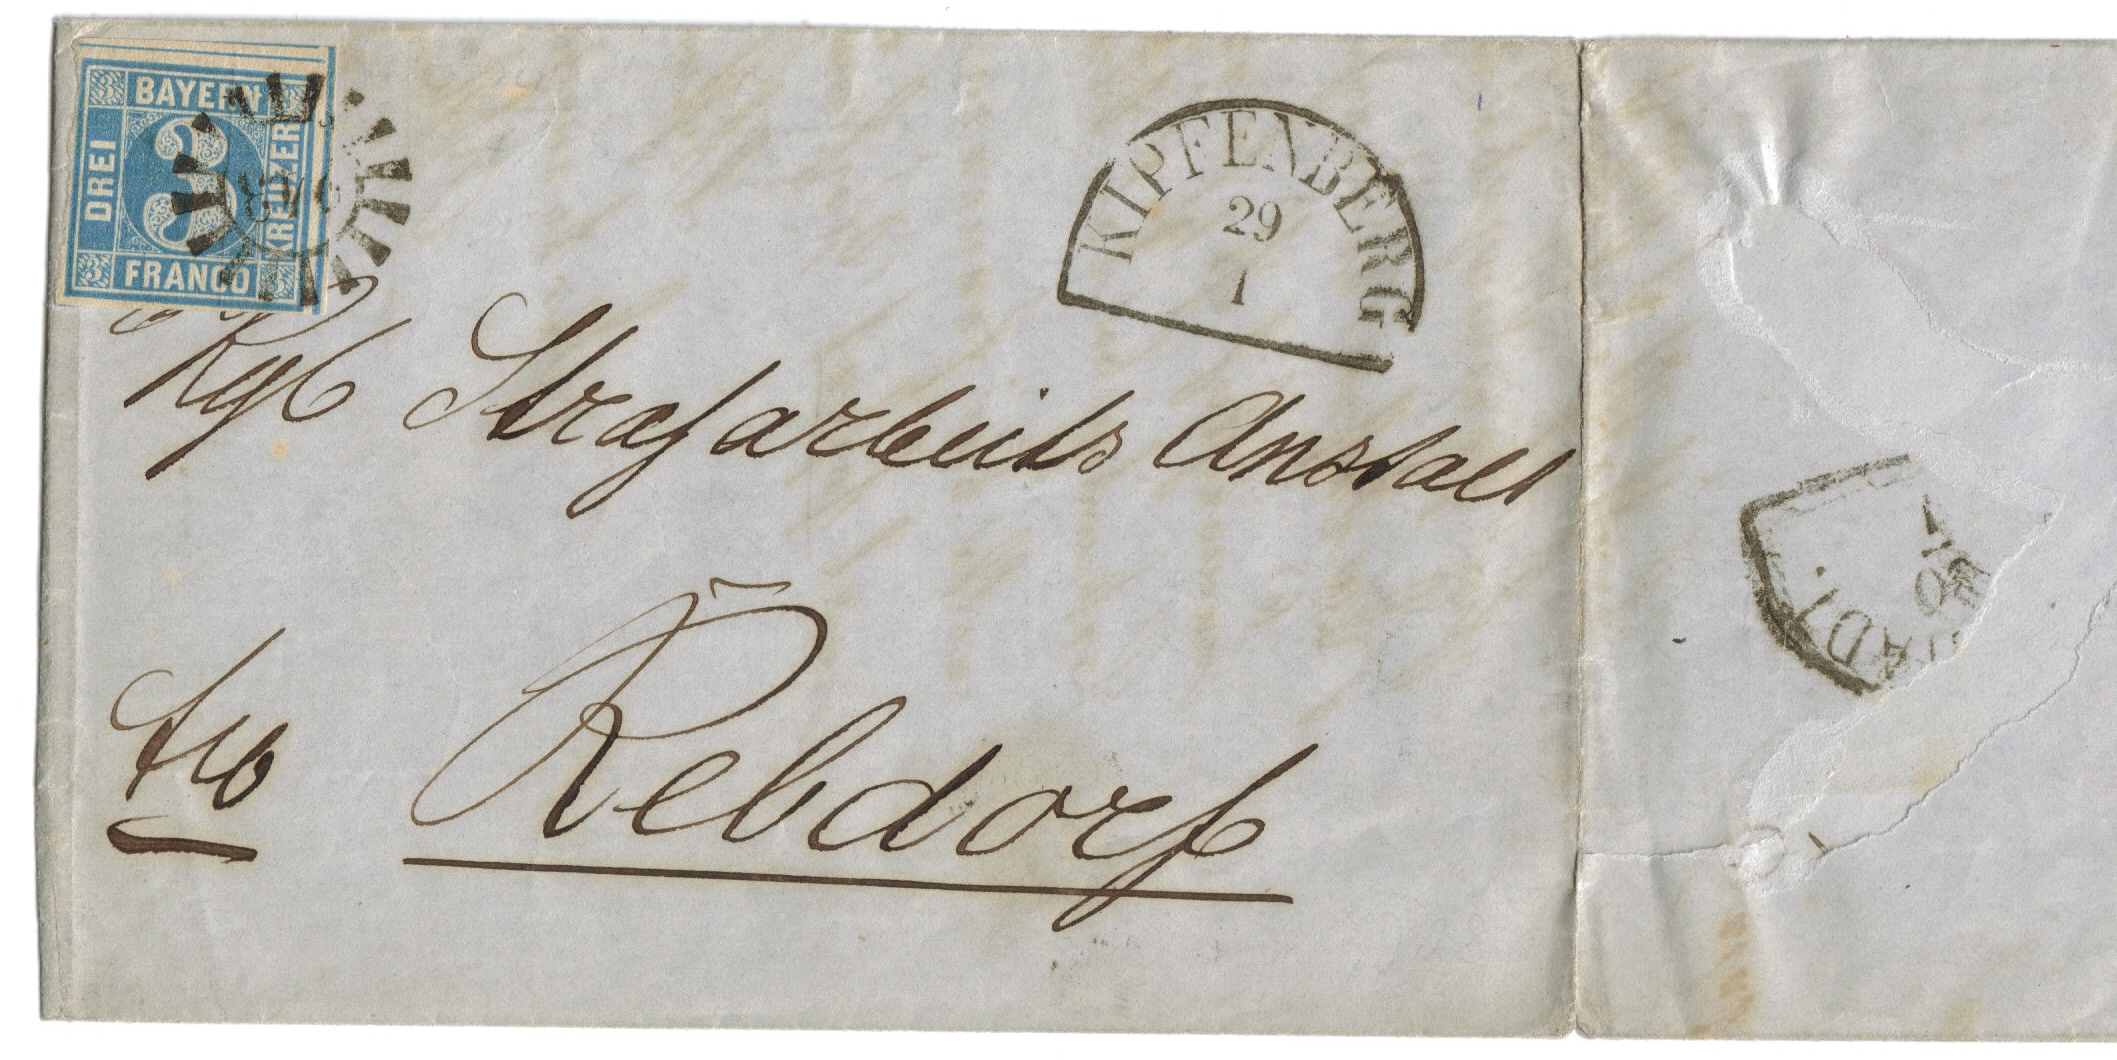 BAYERN
DREI
KREUZER
FRANCO
3
3
3
3
KIPFENBERG
29
1
Kgl Strafarbeits Anstalt
fro Rebdorf
TADT.